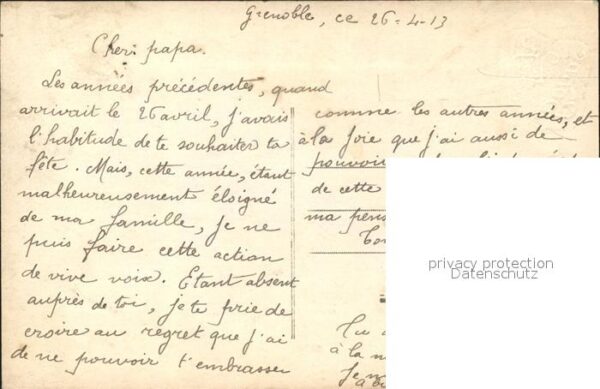 Grenoble, ce 26-4-13
Cher papa.
Les années précédentes, quand
arrivait le 26 avril, j'avais
l'habitude de te souhaiter ta
fête. Mais, cette année, étant
malheureusement éloigné
de ma famille, je ne
puis faire cette action
de vive voix. Etant absent
auprès de toi, je te prie de
croire au regret que j'ai
de ne pouvoir t'embrasser
comme les autres années, et
à la Joie que j'ai aussi de
pouvoir
de cette
ma
Tu
à la
privacy protection
Datenschutz